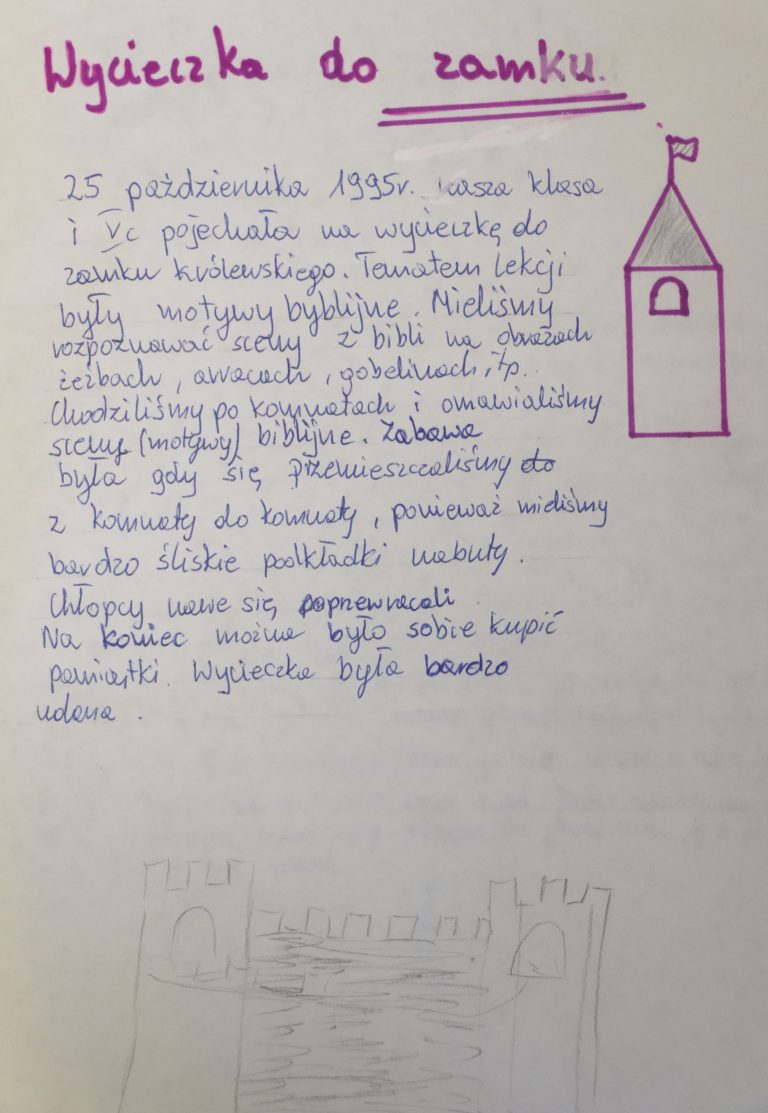 Wycieczka do zamku.
25 października 1995r. nasza klasa
i Vc pojechała na wycieczkę do
zamku królewskiego. Tematem lekcji
były motywy byblijne. Mieliśmy
rozpoznawać sceny z bibli na obrazach
żeźbach, arracach, gobelinach, itp.
Chodziliśmy po komnatach i omawialiśmy
sceny (motywy) biblijne. Zabawa
była gdy się przemieszczaliśmy do
z komnaty do komnaty, ponieważ mieliśmy
bardzo śliskie podkładki nabuty.
Chłopcy nawe się poprzewracali
Na koniec można było sobie kupić
pamiątki. Wycieczka była bardzo
udana.